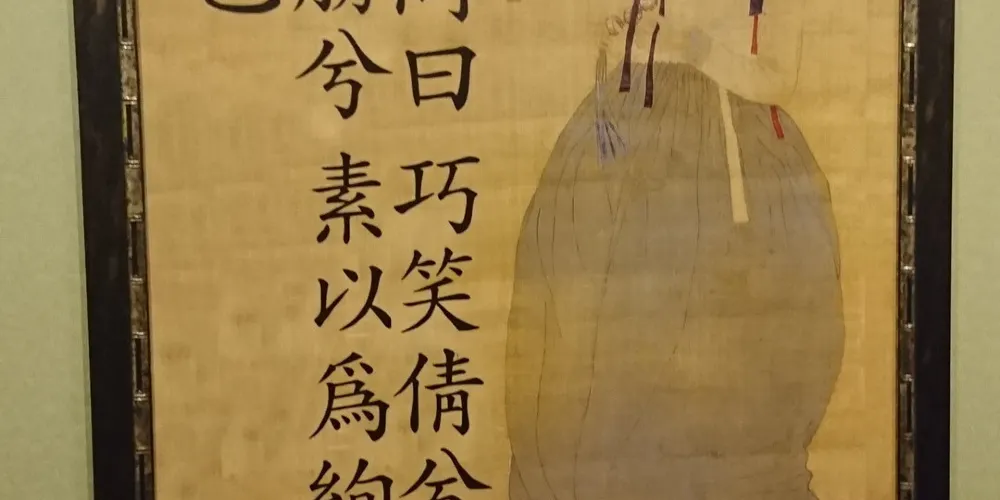 曰巧笑倩兮
兮素以爲絢